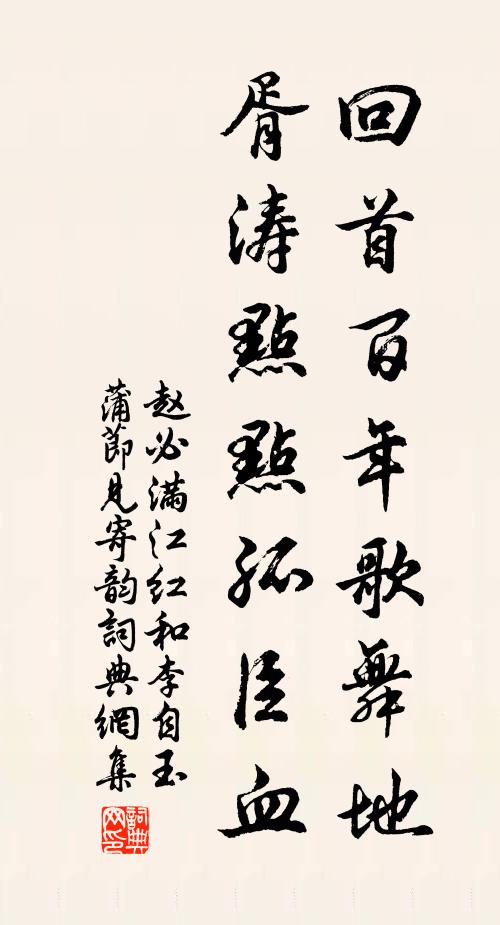 回首百年歌舞地
胥涛點點孤臣血
赵必满江红和李自玉
蒲節見寄韵詞典網集
詞典網印